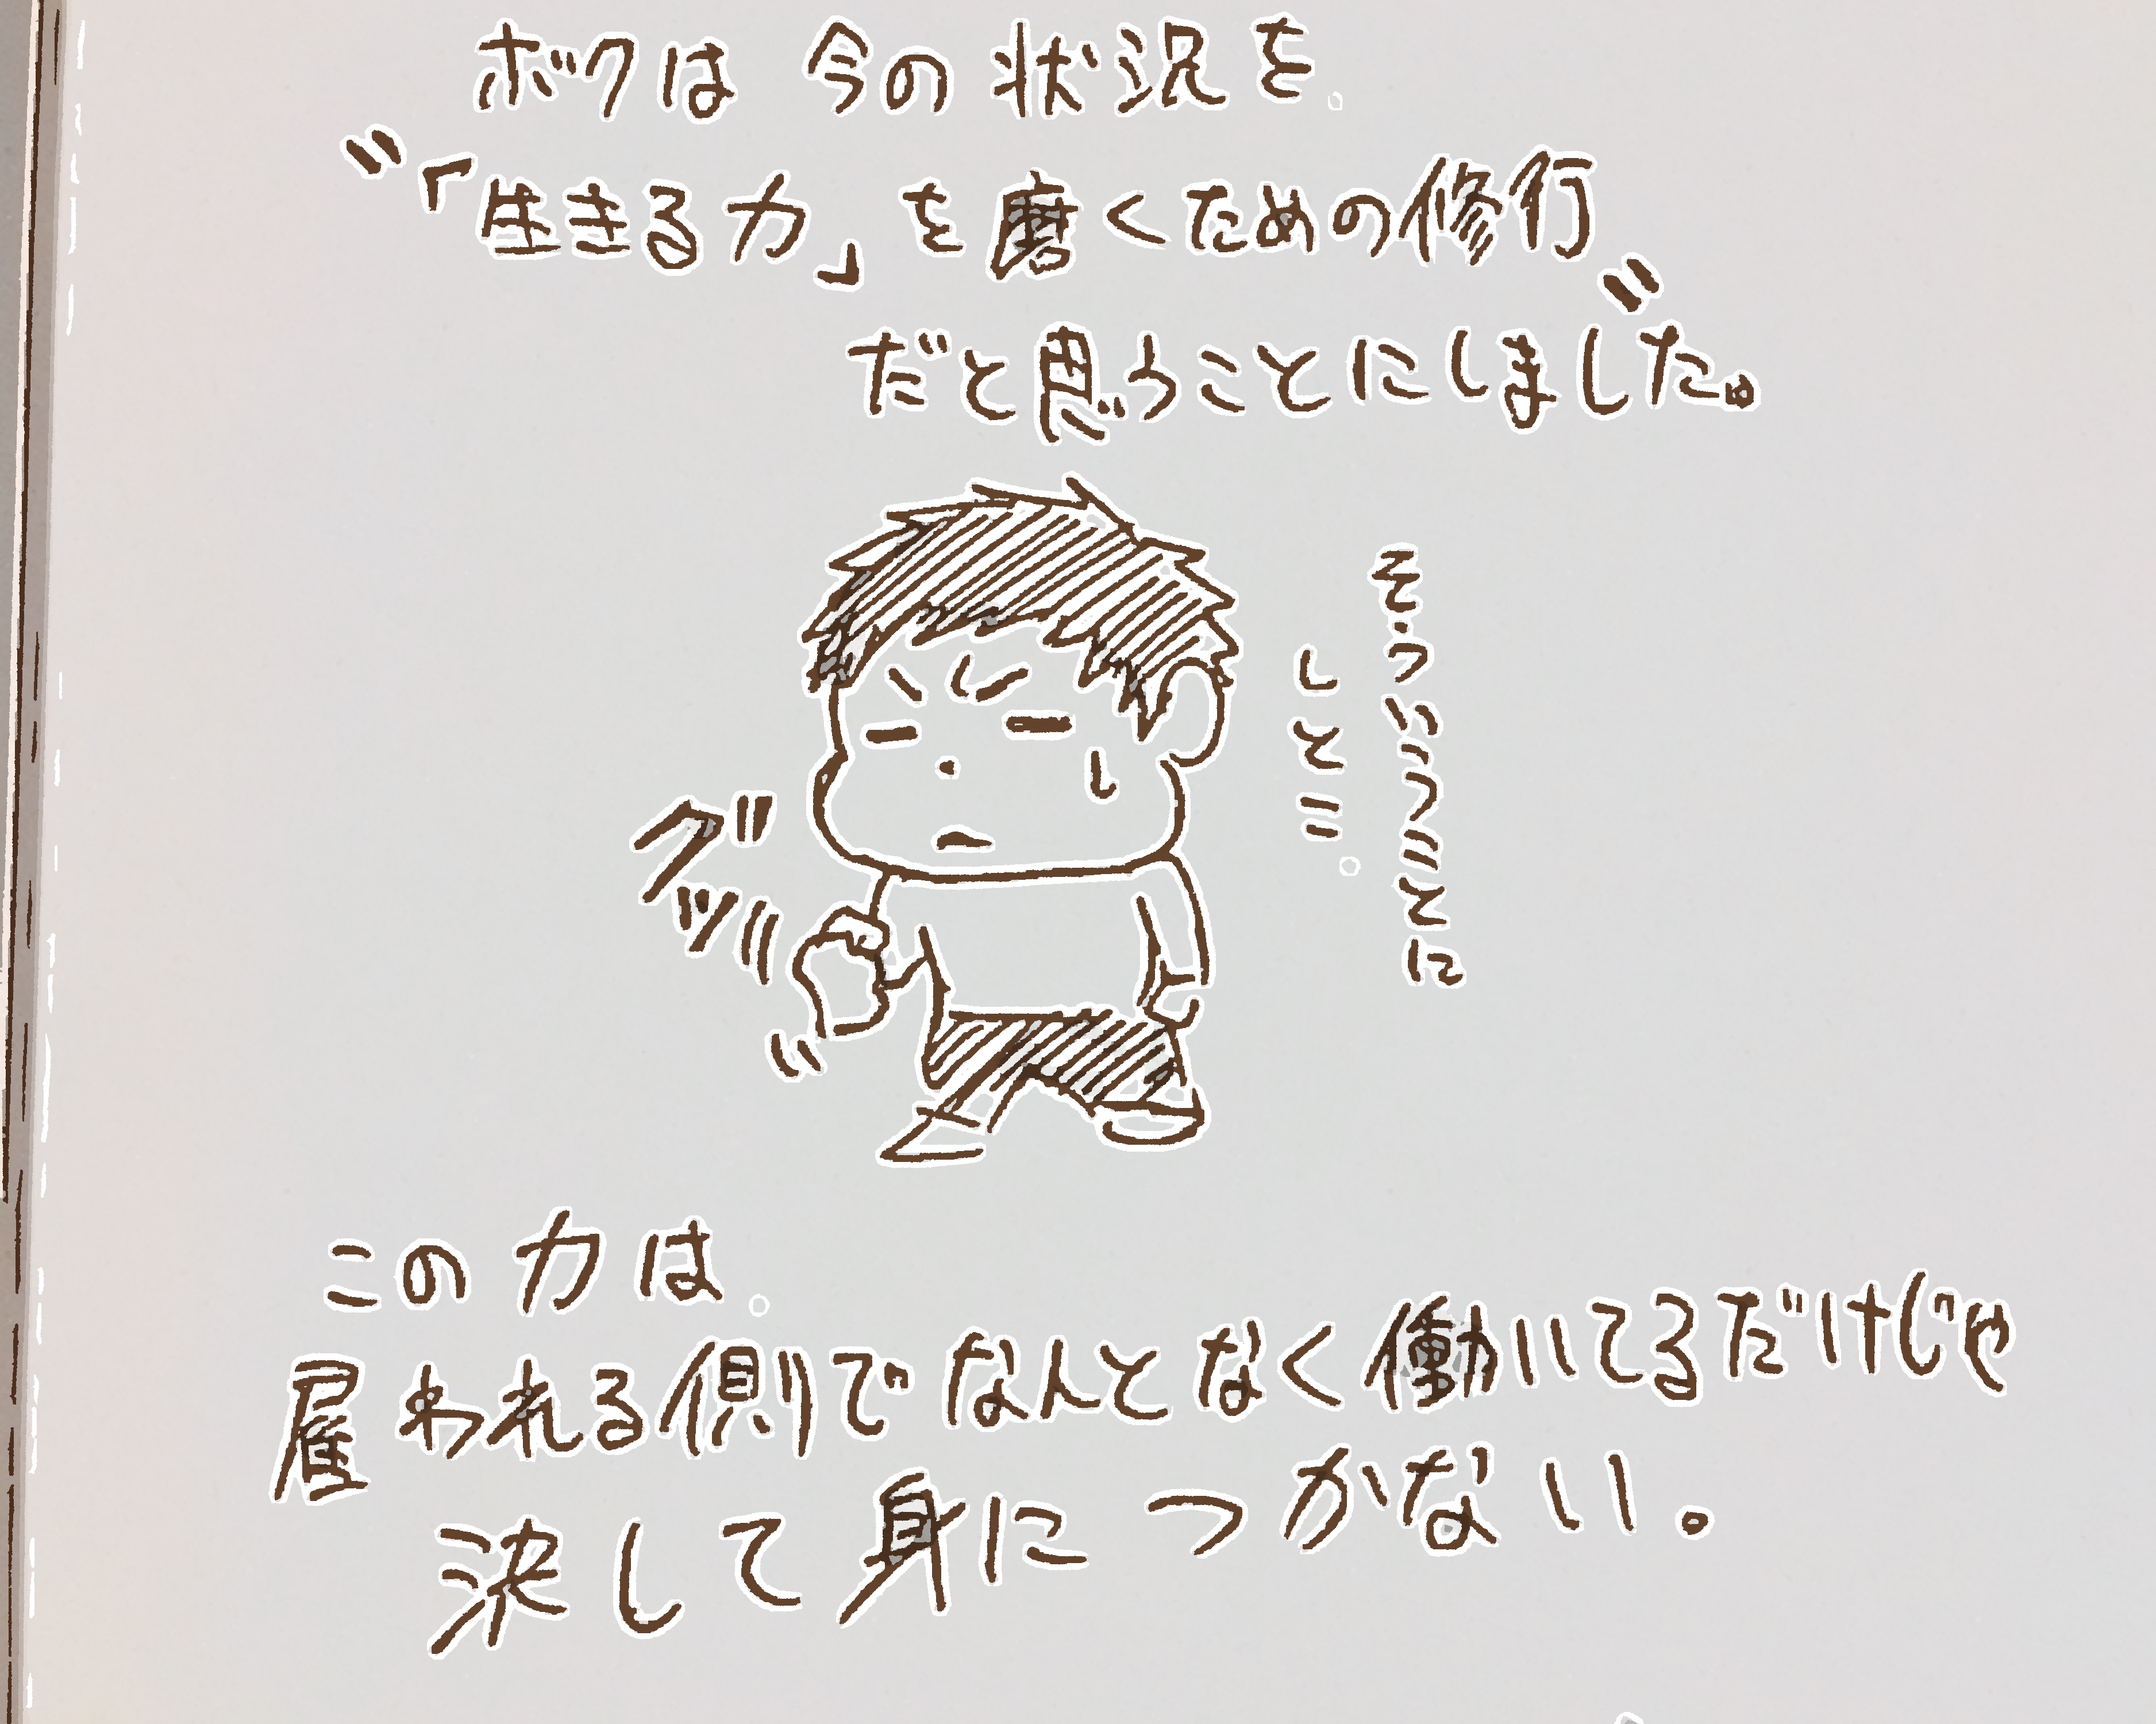 ボクは 今の 状況を
〝「生きる力」を磨くための修行〟
だと思うことにしました。
そういうことに
しとこ
グッ
この力は
雇われる側でなんとなく働いてるだけじゃ
決して身に つかない。